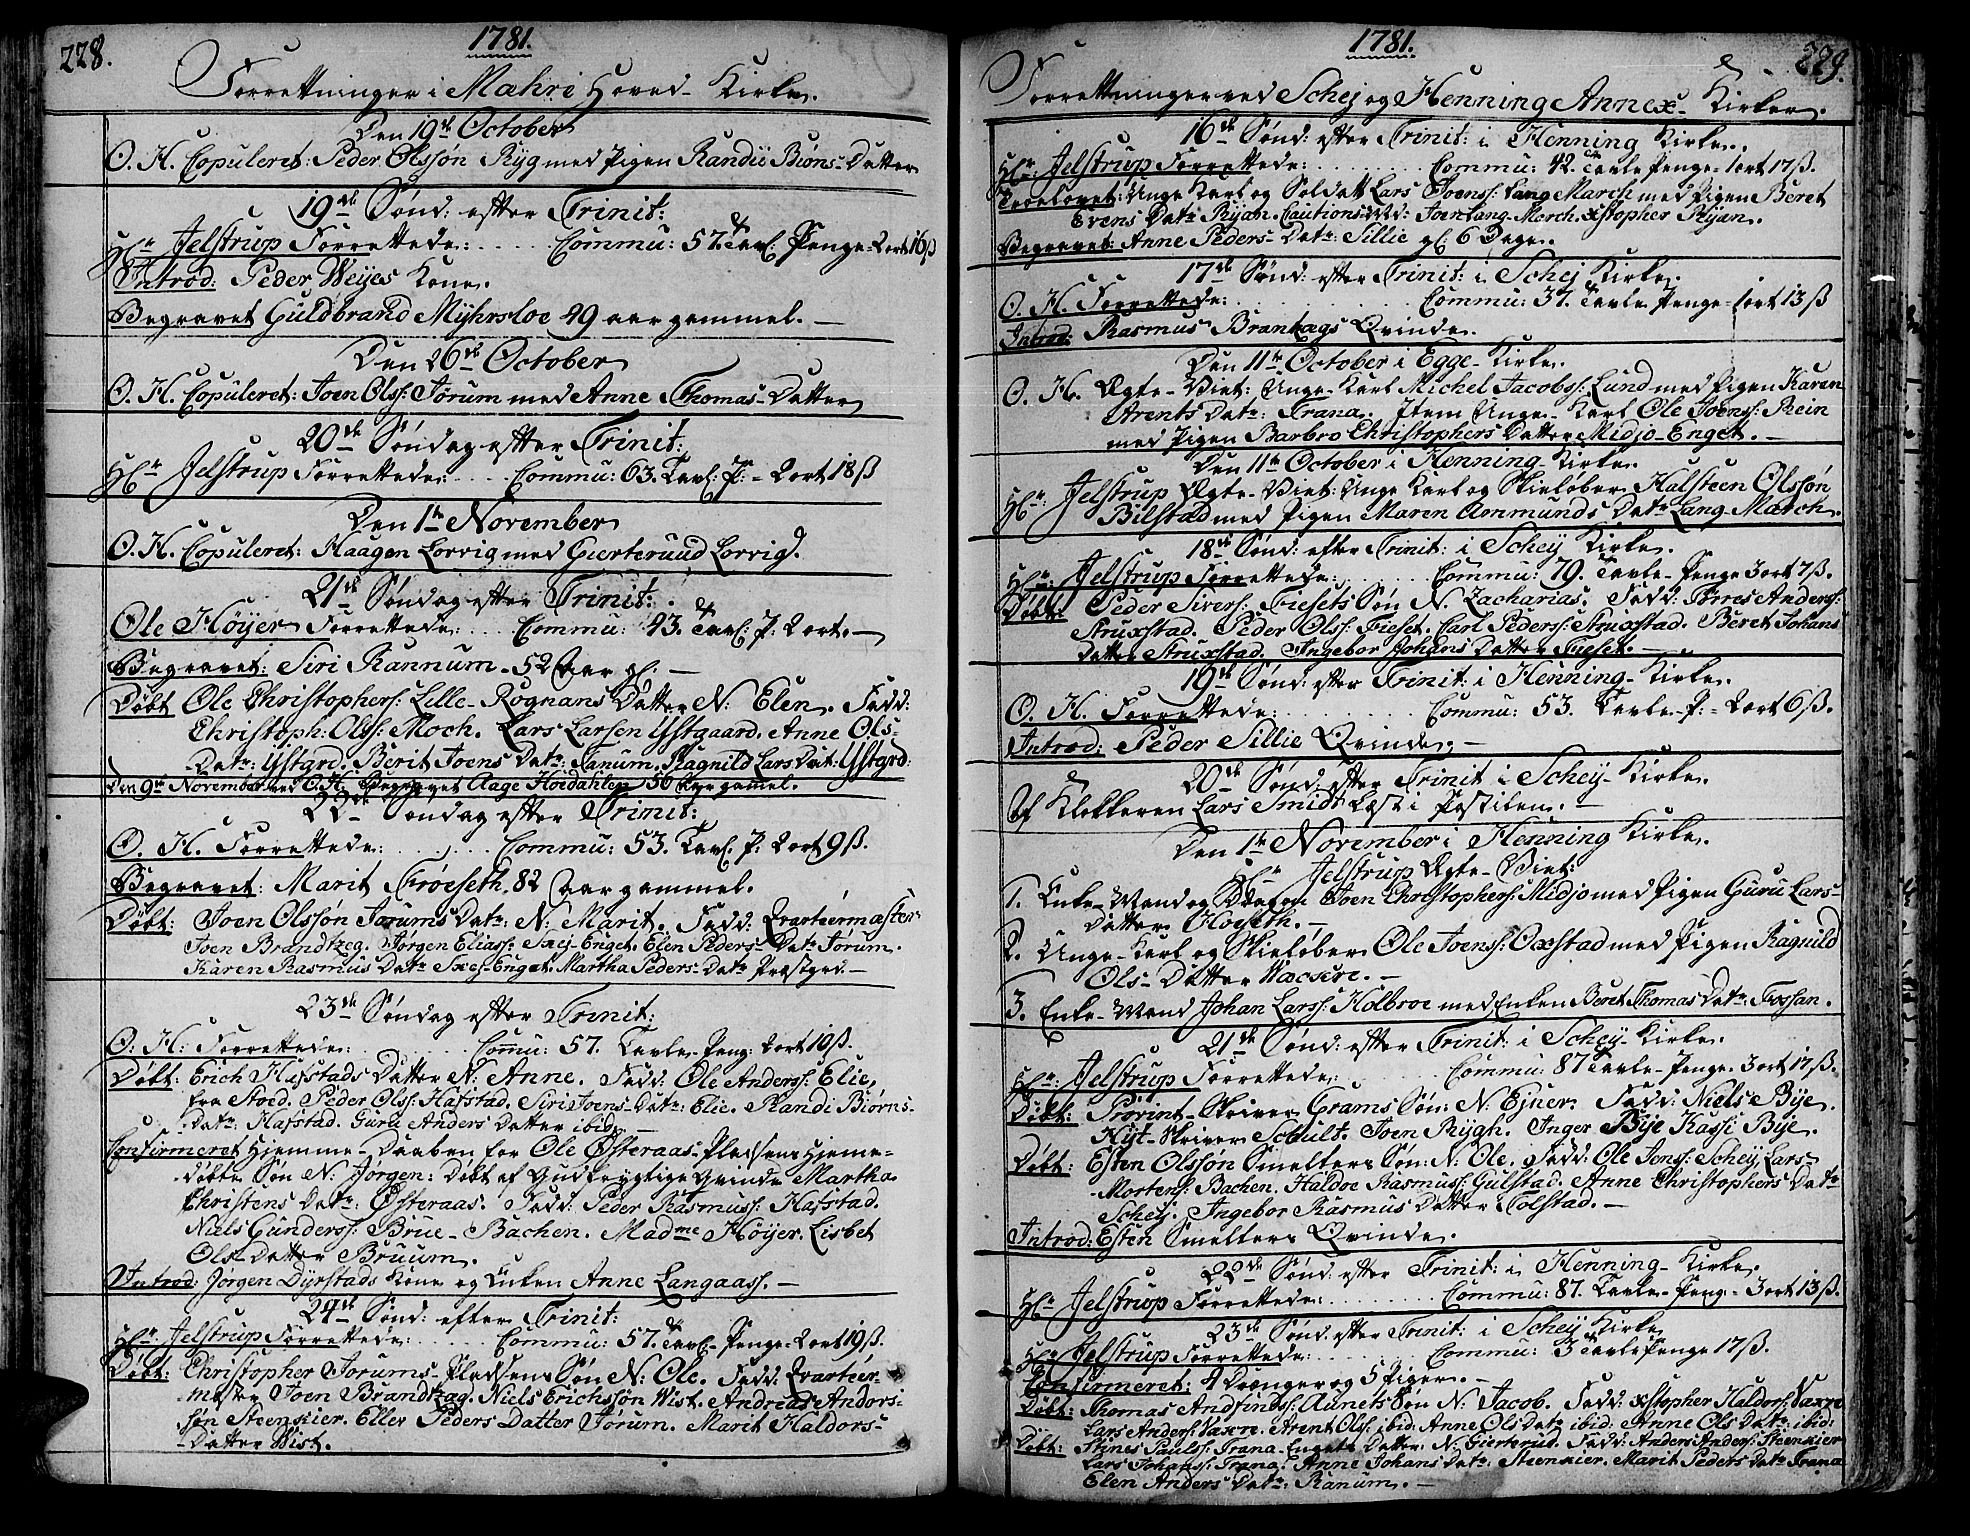 228.
1781.
Forrettninger i Mæhri Hoved-Kirke.
Den 19de October
O. H. Copuleret: Peder Olssøn Ryg med Pigen Randii Biøns-Datter
19de Sønd: efter Trinit:
Hr. Jelstrup Forrettede: Commu: 57. Tavl: Penge 2 ort 16 ß
Introd: Peder Weyes Kone.
Begravet Guldbrand Myhrsloe 49 aar gammel.
Den 26de October
O. H. Copuleret: Joen Olss: Jørum med Anne Thomas-Datter
20de Søndag efter Trinit:
Hr. Jelstrup Forrettede: Commu: 63. Tavl: P: 2 ort 18 ß
Den 1te November
O. H. Copuleret: Haagen Lorvig med Gierterüüd Lorvig.
21de Søndag efter Trinit:
Ole Høyer Forrettede: Commu: 43. Tavl: P: 2 ort.
Begravet: Siri Rannum 52 Aar gl:
Døbt Ole Christophers: Lille-Rognans Datter N: Elen. Fadd:
Christoph: Olss: Moch. Lars Larsen Ystgaard. Anne Ols-
Datr: Ystgrd. Berit Joens Datr: Tanum. Ragnild Lars Dat: Ystgrd:
Den 9de November ved O. H. Begravet Aage Hoidahlen 56 Aar gammel.
22de Søndag efter Trinit:
O. H. Forrettede: Commu: 53. Tavl: P: 2 ort 9 ß.
Begravet: Marit Frøeseth. 82 Aar gammel.
Døbt: Joen Olssøn Jorums Datr: N: Marit. Fadd: Qvarteermæster
Joen Brandtzeg. Jørgen Eliass: Skej-Enget. Elen Peders-Datr Jørum.
Karen Rasmus Datr Skej-Enget. Martha Peders-Datr Præstgrd.
23de Søndag efter Trinit:
O: H: Forrettede: Commu: 57. Tavle-Peng: 2 ort 19 ß.
Døbt: Erich Hafstads Datter N: Anne. Fadd: Ole Anderss: Elie,
fra Stoed. Peder Olss: Hafstad. Siri Joens-Datr: Elie. Randi Biørns-
Datr: Hafstad. Guru Anders Datter ibid.
Confirmeret Hjemme-Daaben for Ole Østeraas-Pladsens Hjeme-
døbte Søn N: Jørgen: døbt af Gudfrygtige Qvinde Martha
Christens Datr: Østeraas. Fadd: Peder Rasmuss: Hafstad.
Niels Gunderss: Brue-Bachen. Madme Høyer. Lisbet
Ols-Datter Bruum.
Introd: Jørgen Dyrstads Kone og Enken Anne Langaass.
24de Sønd: efter Trinit:
Hr. Jelstrup Forrettede: Commu: 57. Tavl: Penge 2 ort 19 ß.
Døbt: Christopher Jorums-Pladsens Søn N: Ole. Fadd: Qvarteer-
mester Joen Brandtzag. Niels Erichssøn Wist. Andreas Andors-
søn Steenkier. Eller Peders Datter Jørum. Marit Haldors-
Datter Wist.
229.
1781.
Forrettninger ved Schej og Henning Annex-Kirker.
16de Sønd: efter Trinit: i Henning Kirke.
Hr. Jelstrup Forrettede: Commu: 42. Tavle Penge 1 ort 17 ß
Trolovet: Unge Karl og Soldatt Lars Joenss: Lang March med Pigen Beret
Evens Datr Ryan. Cautions-Md: Joen Lang March. xstopher Ryan.
Begravet: Anne Peders-Datr: Sillie gl: 6 Dage.
17de Sønd: efter Trinit: i Schej Kirke.
O. H. Forrettede: Commu: 37. Tavle Penge 1 ort 13 ß
Introd: Rasmus Brantzægs Qvinde.
Den 11te October i Egge-Kirke.
O. H. Ægte-Viet: Unge-Karl Michel Jacobss: Lund med Pigen Karen
Arents Datr: Frana. Item Unge-Karl Ole Joenss: Rein
med Pigen Barbro Christophers Datter Midjo-Enget.
Den 11te October i Henning-Kirke.
Hr. Jelstrup Ægte-Viet: Unge Karl og Skieløber Halsteen Olssøn
Bilstad med Pigen Maren Ammunds Datr Lang March.
18de Sønd: efter Trinit: i Schey Kirke.
Hr: Jelstrup Forrettede: Commu: 79. Tavle-Penge 3 ort 7 ß.
Døbt: Peder Sivers: Fiesets Søn N. Zacharias. Fadd: Tørres Anderss:
Struxstad. Peder Olss: Fieset. Carl Peders: Struxstad. Beret Johans
Datter Struxstad. Ingebor Johans Datter Fieset.
19de Sønd: efter Trinit: i Henning-Kirke.
O. H. Forrettede: Commu: 53. Tavle-P: 2 ort 6 ß.
Introd: Peder Sillie Qvinde.
20de Sønd: efter Trinit: i Schey-Kirke.
Af Klokkeren Lars Smidt Læst i Postilen.
Den 1te November i Henning Kirke.
Hr. Jelstrup Ægte-Viet:
1. Enke-Mand og Joen Christophers: Midjo med Pigen Guru Lars-
Datter Hoeseth.
2. Unge-Karl og Skieløber Ole Joenss: Oxstad med Pigen Ragnild
Ols-Datter Wæcsere.
3. Enke-Mand Johan Larss: Holbroe med Enken Beret Thomas Datr: Fossan.
21de Sønd: efter Trinit: i Schey-Kirke.
Hr: Jelstrup Forrettede: Commu: 87 Tavle-Penge 3 ort 17 ß.
Døbt: Provint-Skriver Grams Søn: N: Ejner. Fadd: Niels Bye.
Hyt-Skriver Schult. Joen Rygh. Inger Bye Kassi Bye.
Døbt: Esten Olssøn Smelters Søn: N: Ole. Fadd: Ole Jonss: Schey, Lars
Mortens: Bachen. Haldoe Rasmuss: Gulstad. Anne Christophers Datr
Schej. Ingebor Rasmus Datter Tolstad.
Introd: Esten Smelters Qvinde.
22de Sønd: efter Trinit: i Henning-Kirke.
Hr. Jelstrup Forrettede: Commu: 87. Tavle-Peng: 3 ort 13 ß.
23de Sønd: efter Trinit: i Schej Kirke
Hr. Jelstrup Forrettede: Commu: 3 Tavle Penge 17 ß.
Confirmeret: 4 Drenger og 5 Piger.
Døbt: Thomas Andfinds: Aunets Søn N: Jacob. Fadd: xstopher Haldors: Vaxre
Lars Anders: Vaxre. Arent Olss: ibid: Anne Ols Datr: ibid: Anne Ols Datr: ibid:
Døbt: Stines Pauls: Frana-Engets Datter N: Gierterud. Fadd: Anders Anders: Steenkier
Lars Johans: Frana. Anne Johans Datr. Steenkier. Marit Peders Datr: Frana
Elen Anders Datr: Ranum.